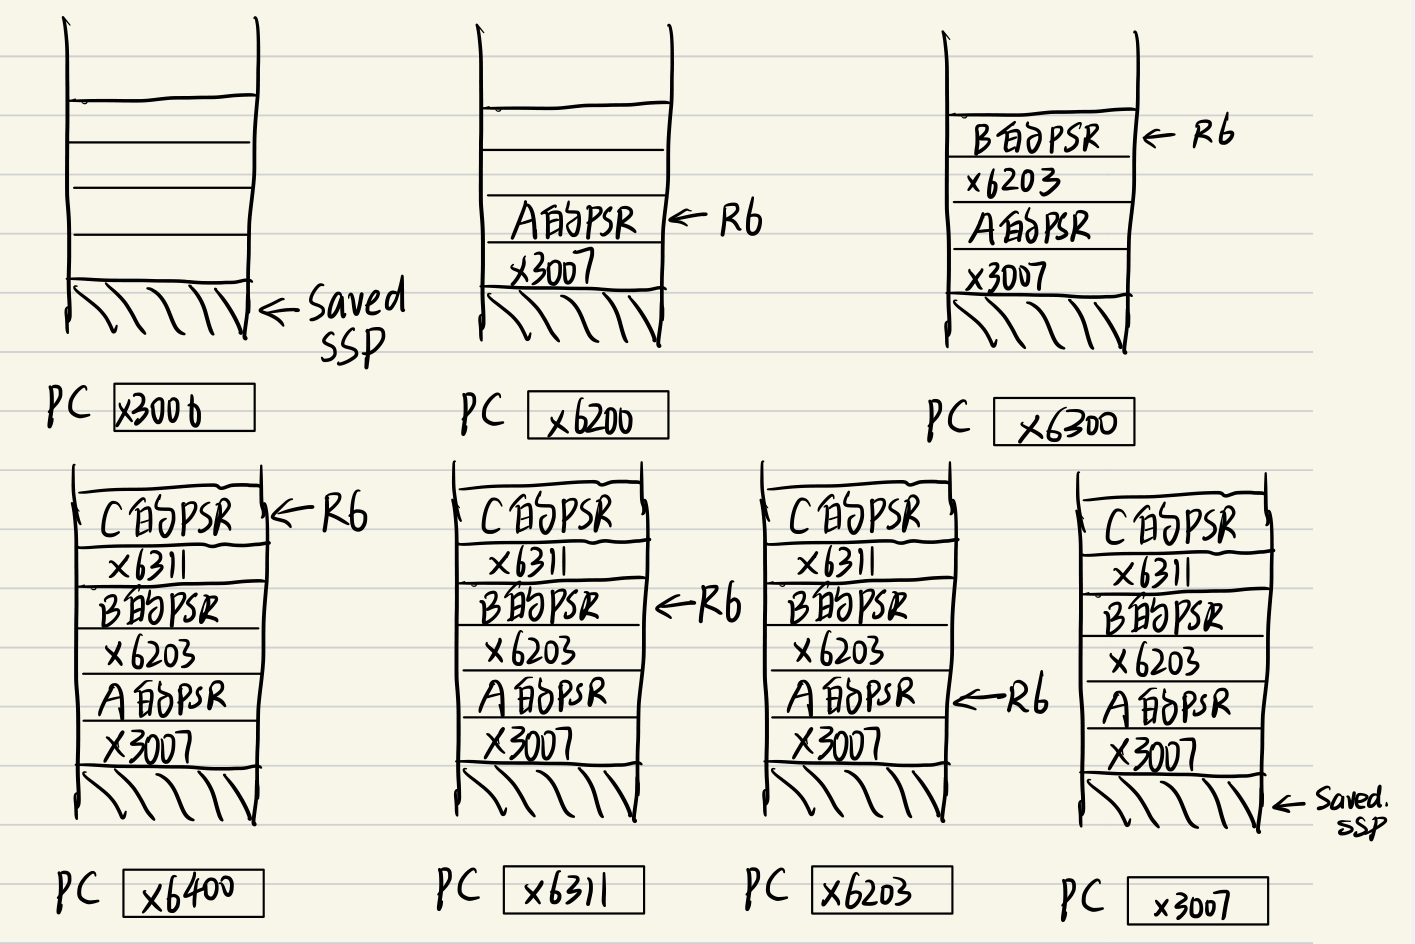 B的PSR ← R6
x6203
A的PSR ← R6
A的PSR
x3007
x3007
← Saved
SSP
PC x3006
PC x6200
PC x6300
C的PSR ← R6
x6311
B的PSR
x6203
A的PSR
x3007
PC x6400
C的PSR
x6311
B的PSR ← R6
x6203
A的PSR
x3007
PC x6311
C的PSR
x6311
B的PSR
x6203
A的PSR ← R6
x3007
PC x6203
C的PSR
x6311
B的PSR
x6203
A的PSR
x3007
← Saved.
SSP
PC x3007